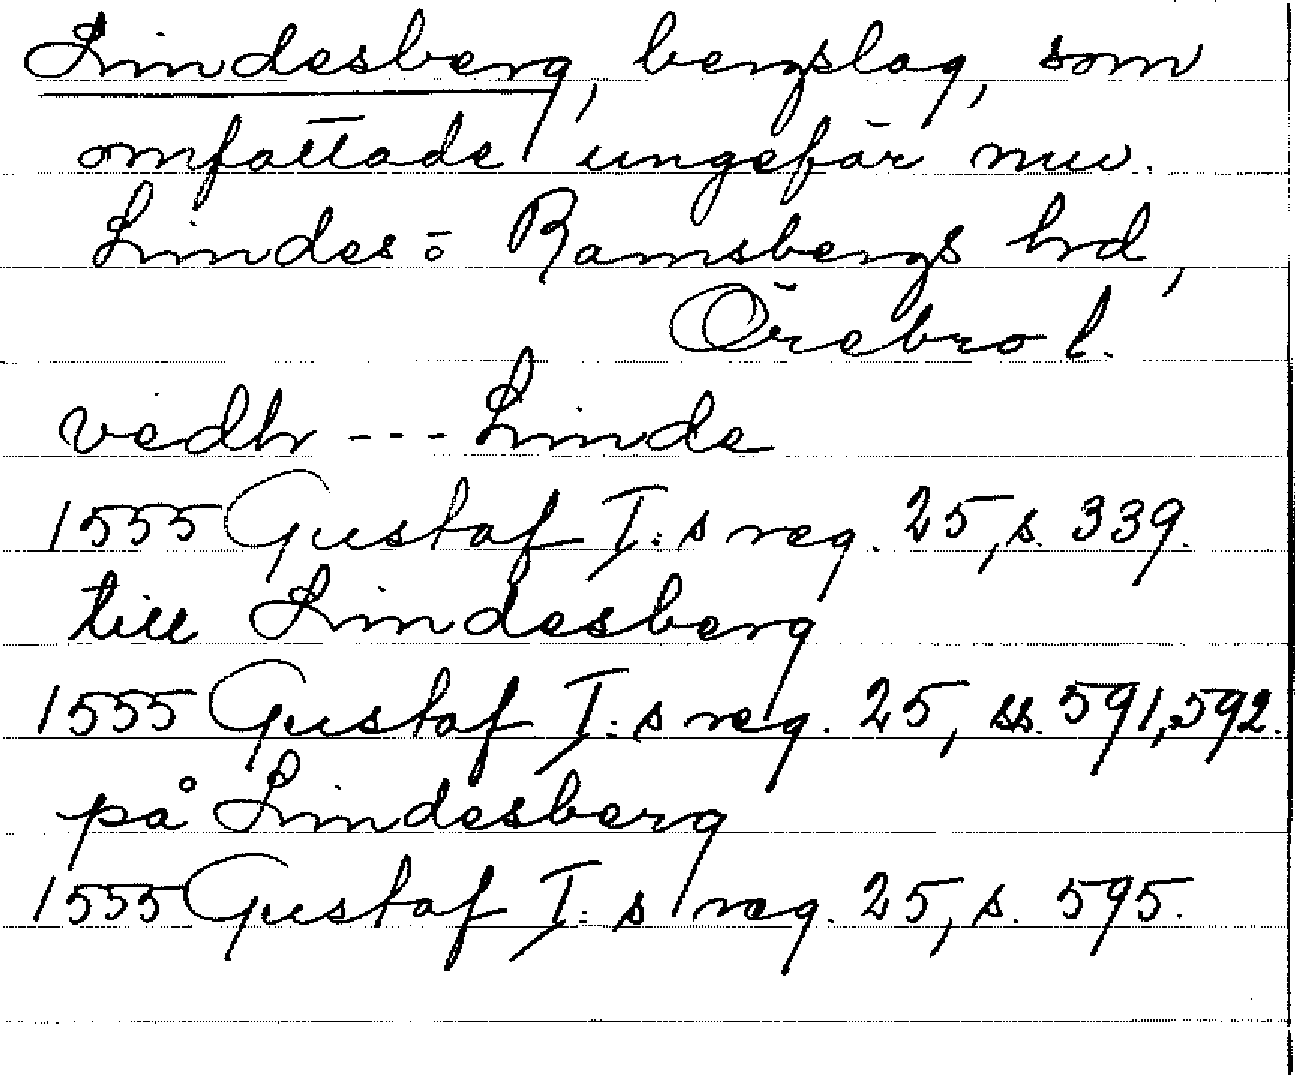 Lindesberg, bergslag, som
omfattade ungefär nuv.
Lindes- o Ramsbergs hrd,
Örebro l.
vedh --- Linde
1555 Gustaf I:s reg. 25, s. 339.
till Lindesberg
1555 Gustaf I:s reg. 25, ss. 591, 592.
på Lindesberg
1555 Gustaf I:s reg. 25, s. 595.